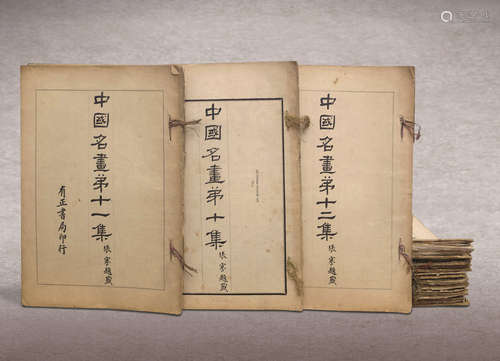 中國名畫第十一集
張謇題籤
有正書局印行
中國名畫第十集
張謇題籤
中國名畫第十二集
張謇題籤